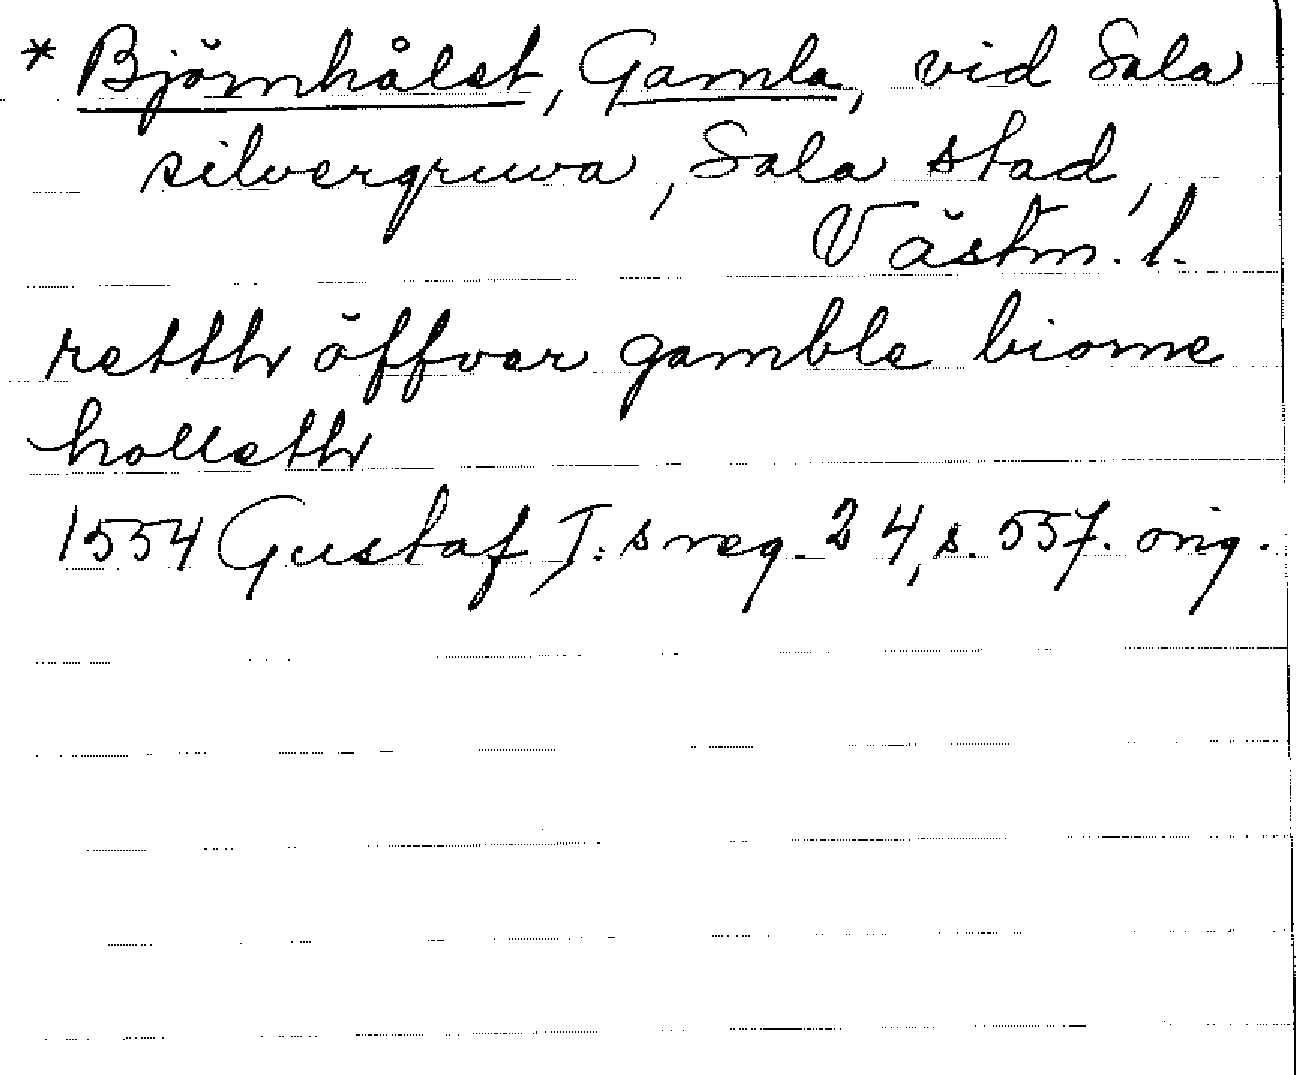 * Björnhålet, Gamla, vid Sala
silvergruva, Sala stad,
Västm. l.
retth öffver gamble biorne
holleth
1554 Gustaf I:s reg. 24, s. 557. orig.